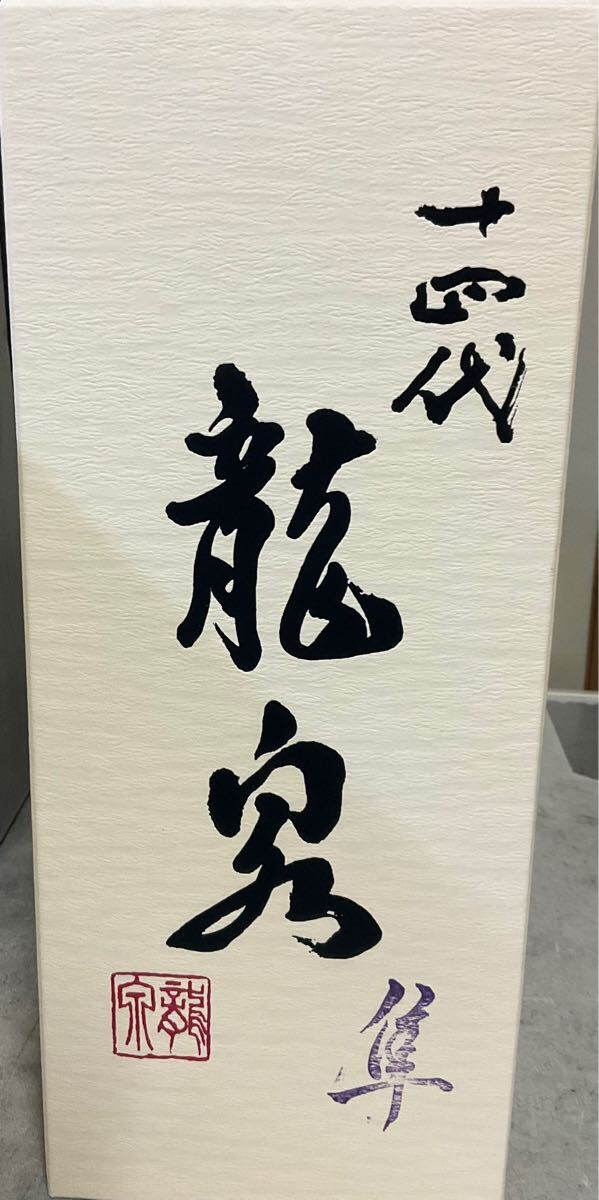 十四代
龍泉
龍泉
隼